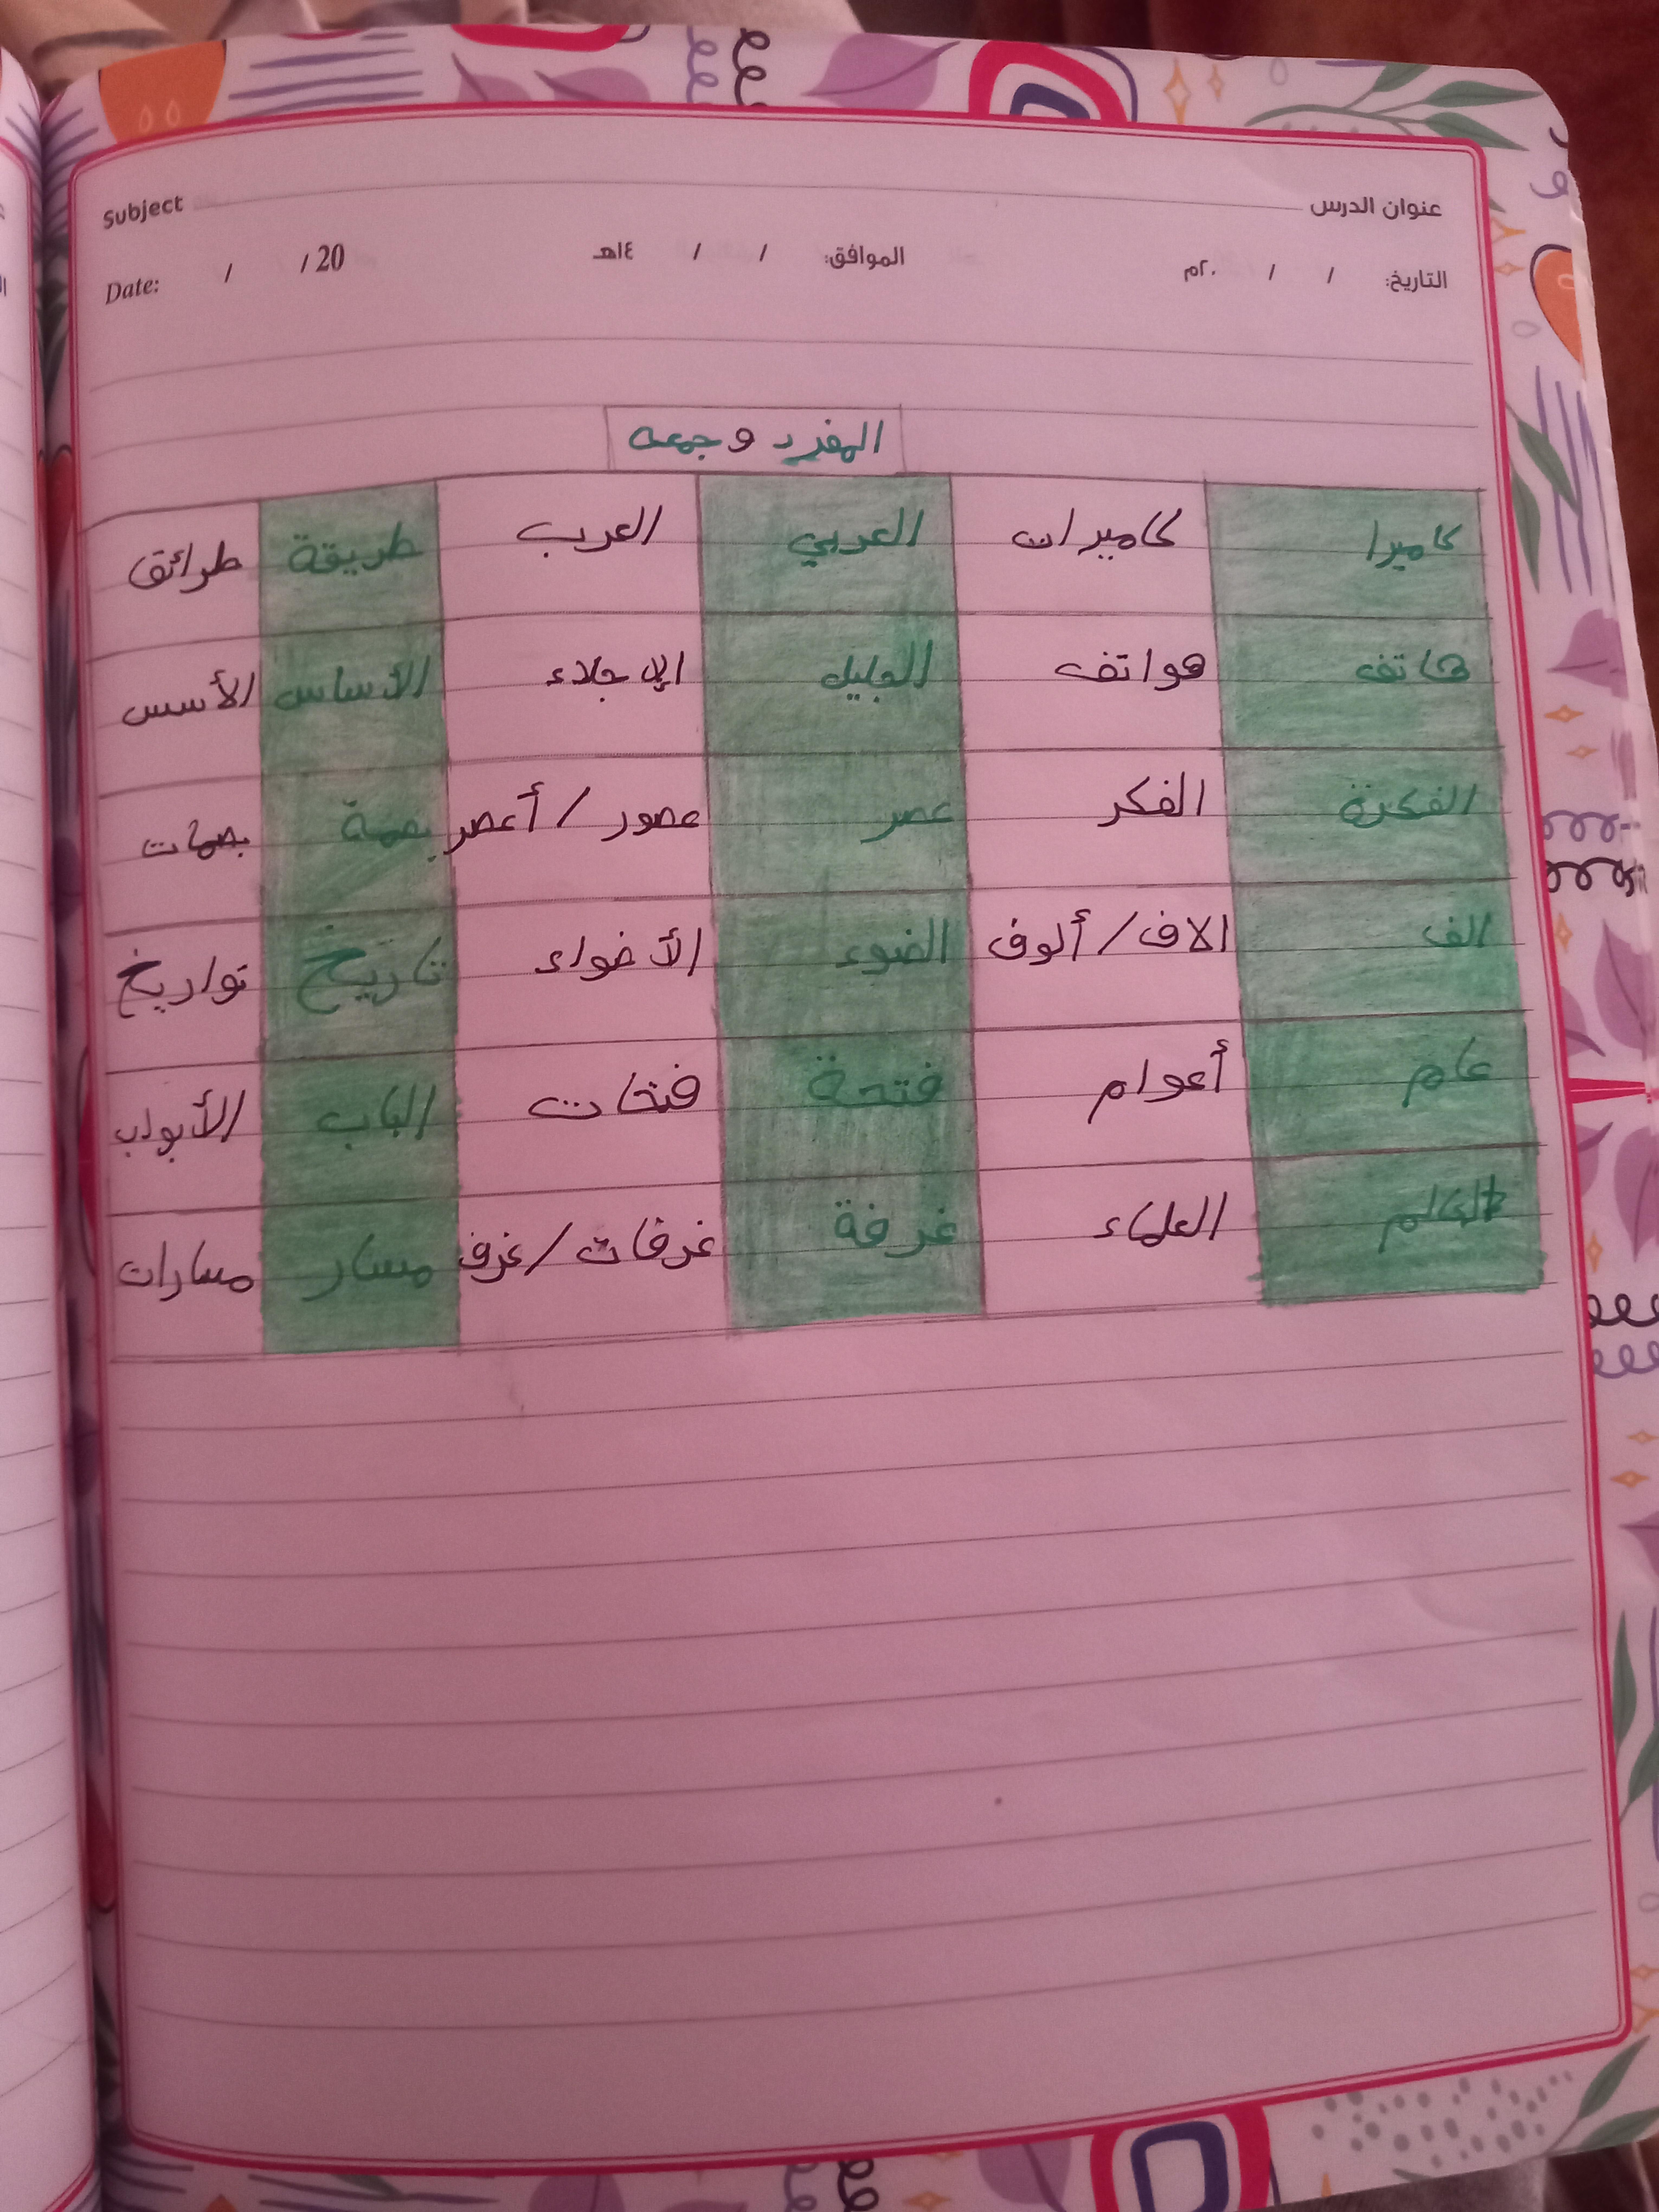 عنوان الدرس Subject
التاريخ: / / ٢٠م الموافق: / / ١٤هـ Date: / / 20
المفرد و جمعه
كاميرا كاميرات العربي العرب طريقة طرائق
هاتف هواتف الجليل الإجلاء الأساس الأسس
الفكرة الفكر عصر عصور / أعصر بصمة بصمات
الف الاف / ألوف الضوء الأضواء تاريخ تواريخ
عام أعوام فتحة فتحات الباب الأبواب
العالم العلماء غرفة غرفات / غرف مسار مسارات